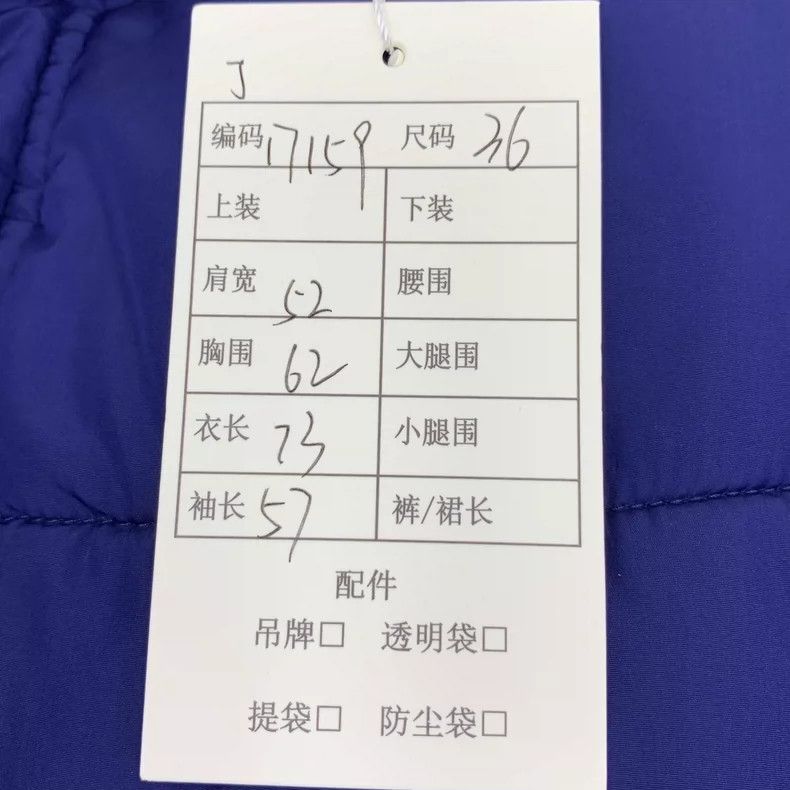 J
编码 17159 尺码 36
上装 下装
肩宽 52 腰围
胸围 62 大腿围
衣长 73 小腿围
袖长 57 裤/裙长
配件
吊牌□ 透明袋□
提袋□ 防尘袋□